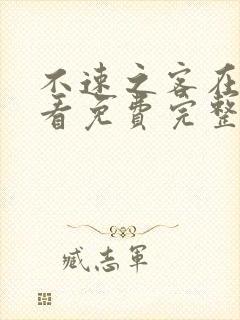 不速之客在
看免费完整
臧志軍